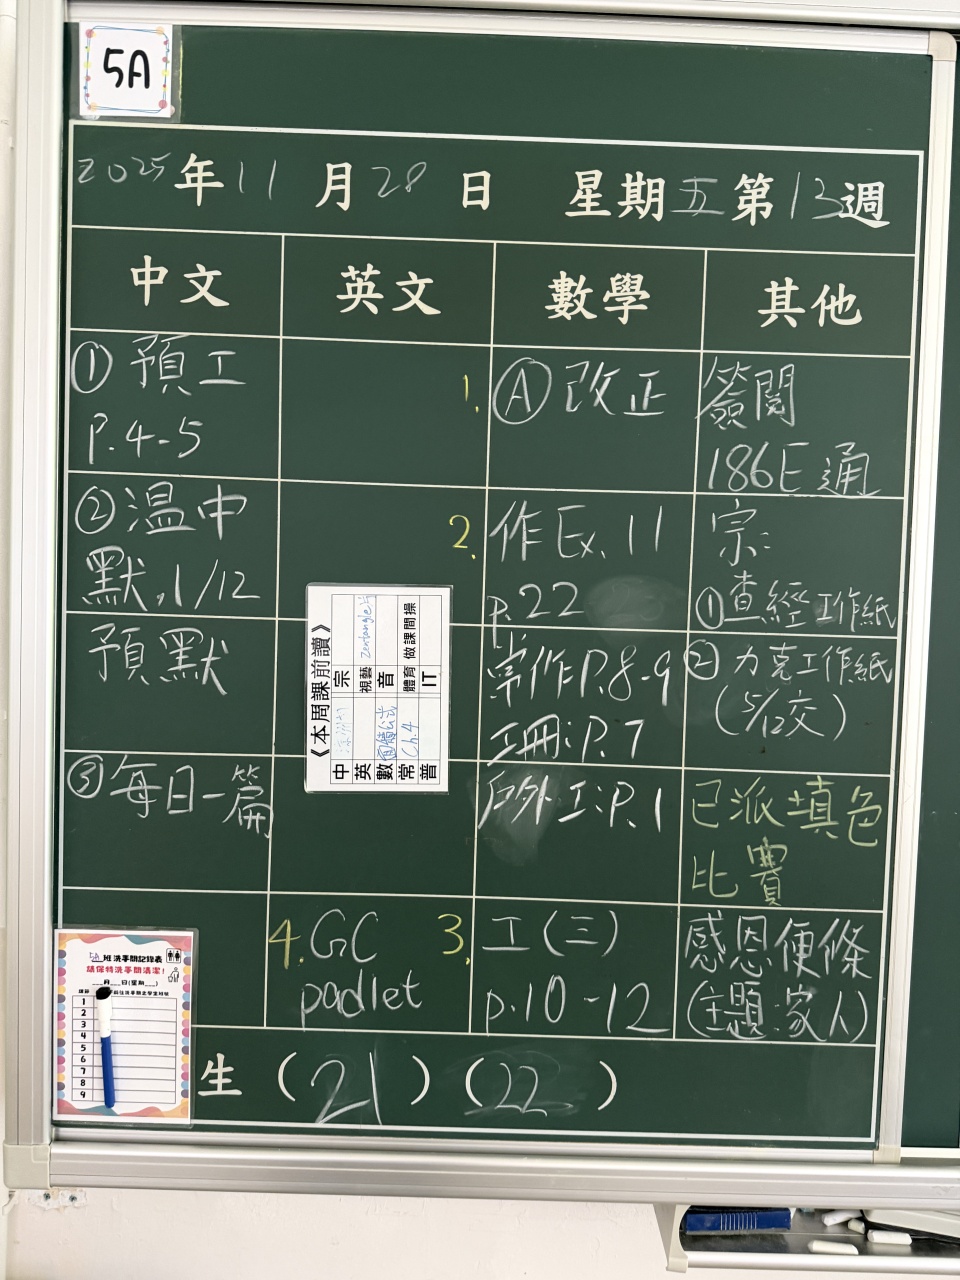 5A
2025年11月28日 星期五第13週
中文
英文
數學
其他
①預工
P.4-5
②溫中
默,1/12
預默
③每日一篇
4.GC
padlet
1.Ⓐ改正
2.作Ex.11
p.22
常作P.8-9
工冊:P.7
戶外工:P.1
3.工(三)
p.10-12
簽閱
186E通
宗:
①查經工作紙
②力克工作紙
(5/12交)
已派填色
比賽
感恩便條
(主題:家人)
《本周課前讀》
中
宗
英
視藝 Zentangle
數 圓錐公式
音
常 Ch.4
體育 做課間操
普
IT
5A班洗手間記錄表
請保持洗手間清潔!
___月___日(星期___)
1
2
3
4
5
6
7
8
9
生(21)(22)